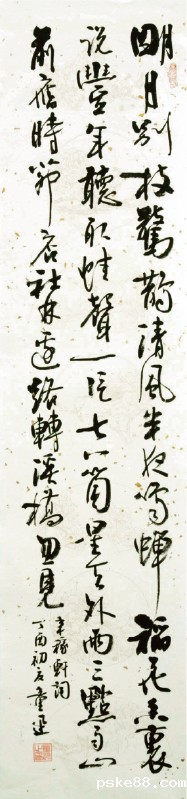 明月别枝驚鵲清風半夜鳴蟬稻花香裏
說豐年聽取蛙聲一片七八箇星天外兩三點雨山
前舊時茆店社林邊路轉溪橋忽見
辛稼軒詞
丁酉初
pske88.com